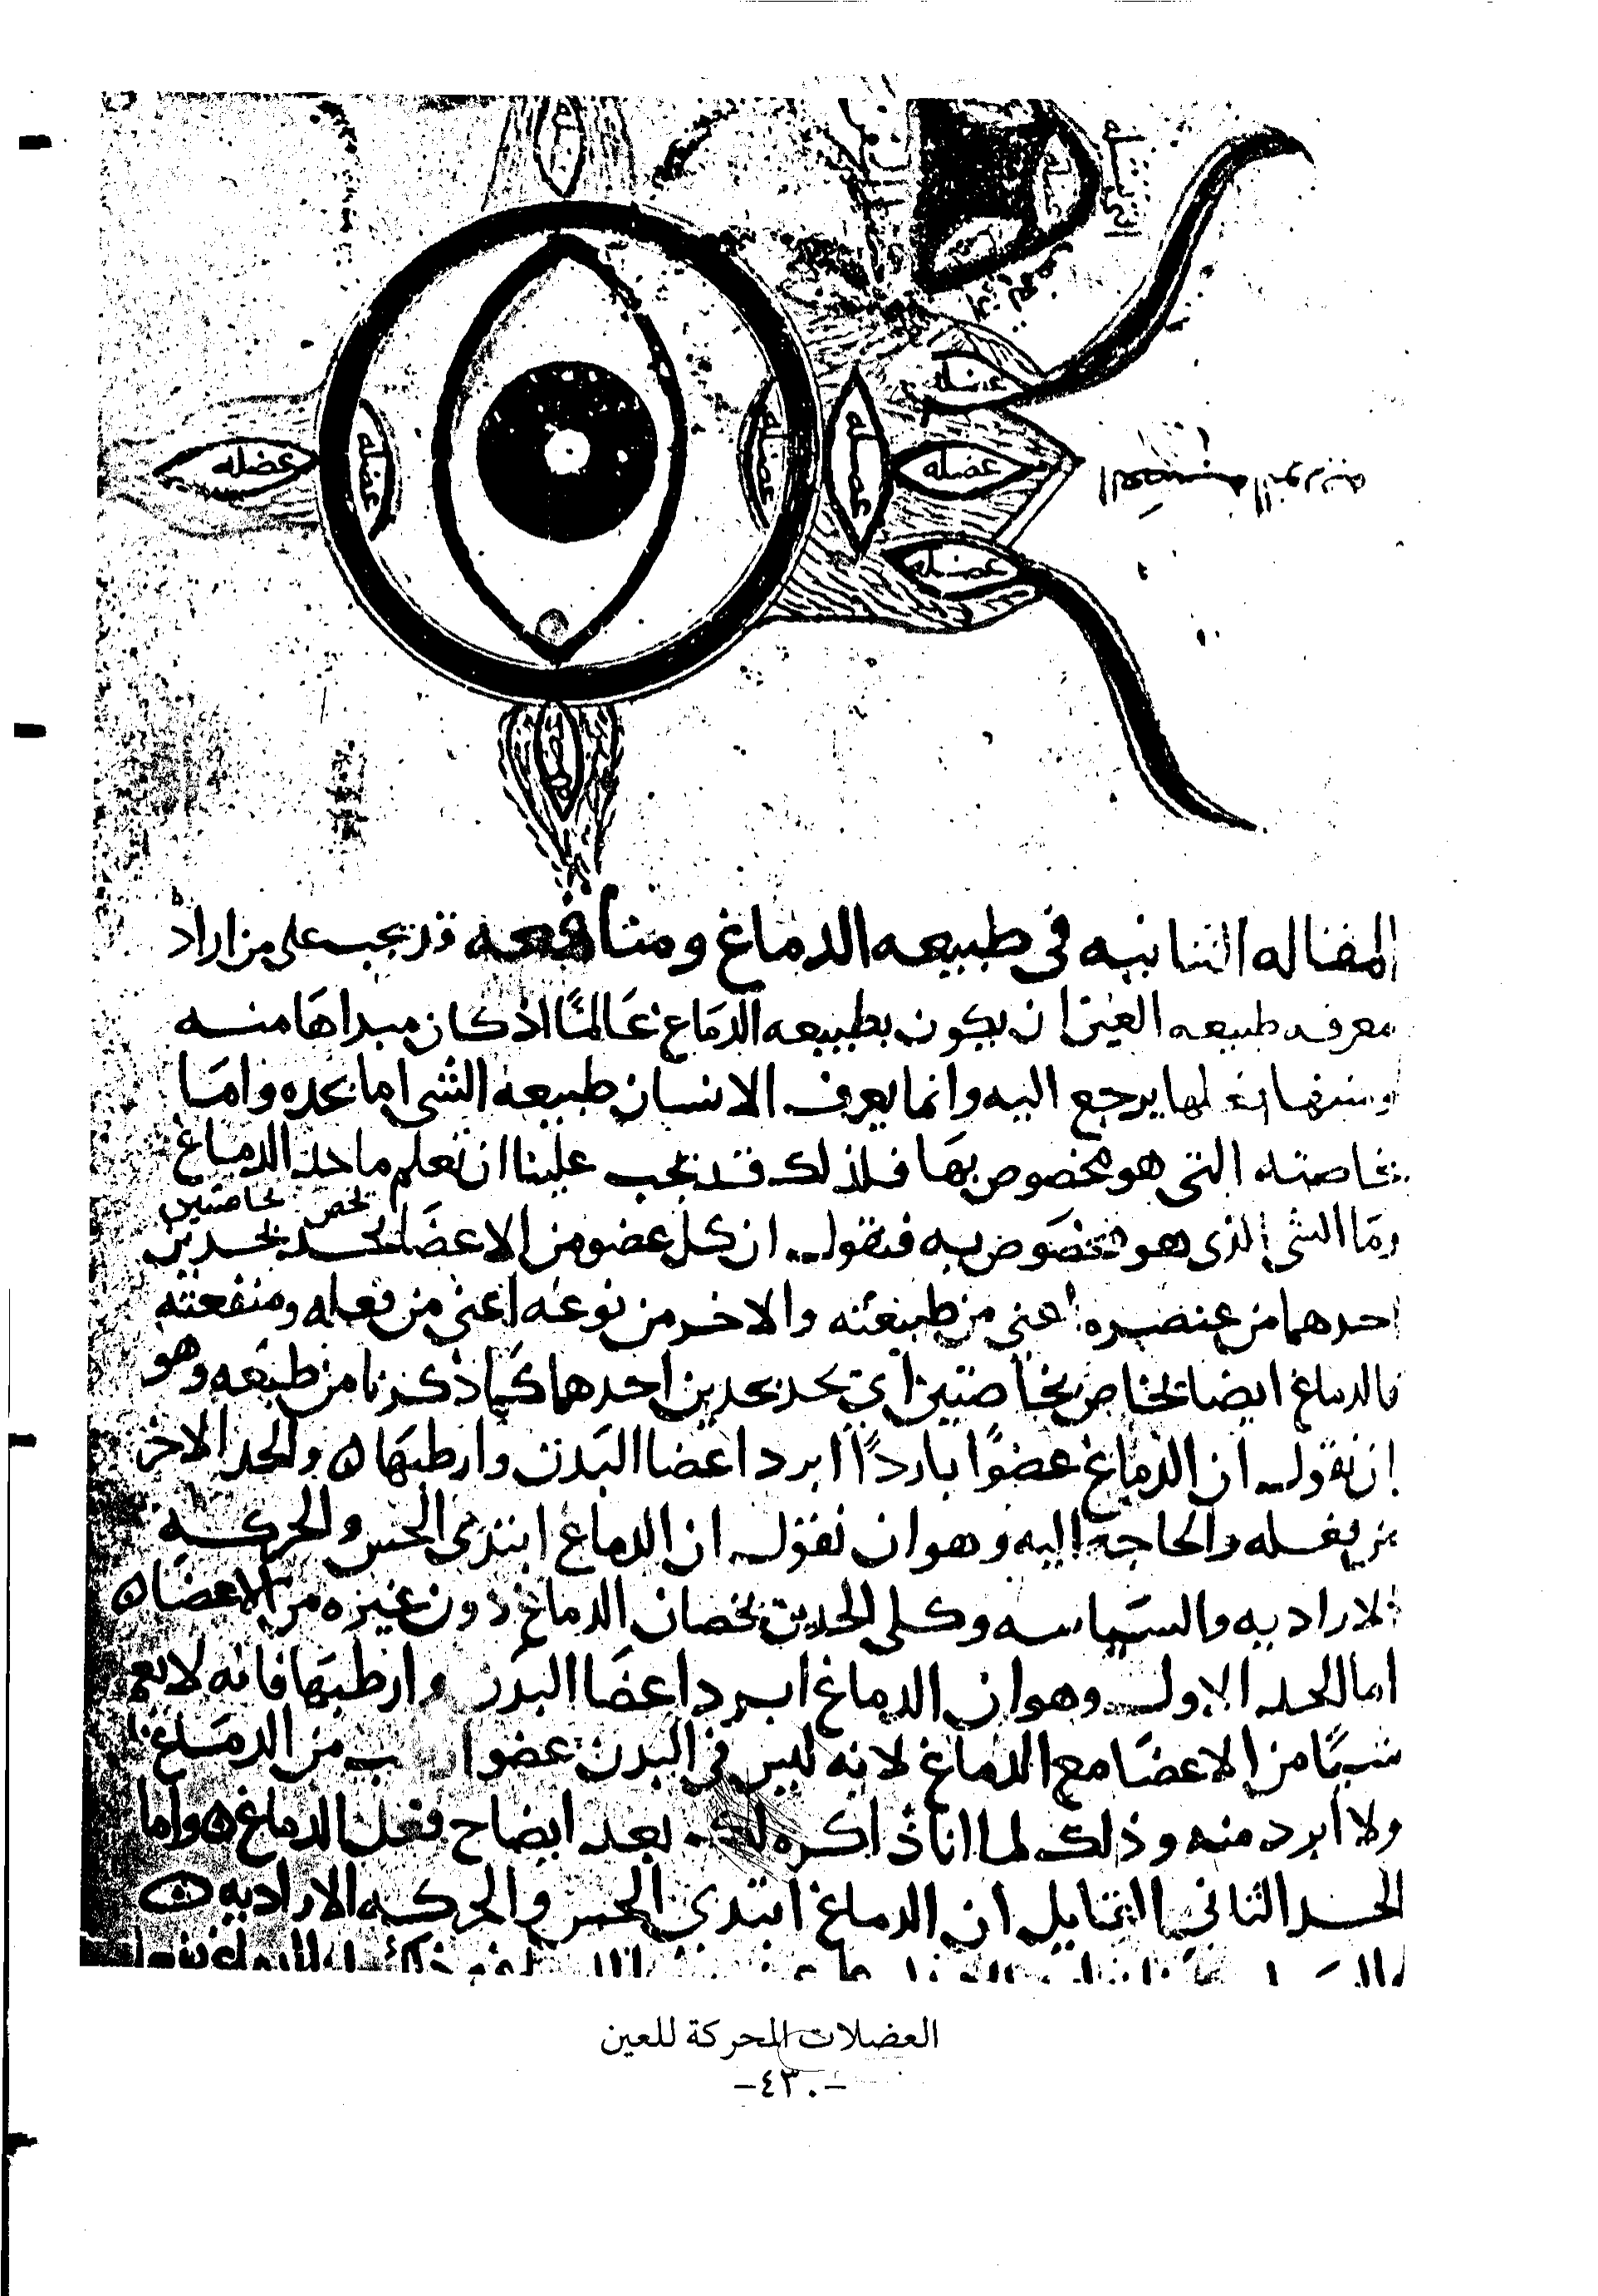 عضله
عضله
عضله
عضله
عضله
عضله
عضله
المقاله الثانيه في طبيعه الدماغ ومنافعه قد يجب على من اراد
معرفه طبيعه العين ان يكون بطبيعه الدماغ عالمًا اذ كان مبداها منه
يرجع اليه وانما يعرف الانسان طبيعه الشي اما بحده واما
بخاصته التي هو مخصوص بها فلذلك قد يجب علينا ان نعلم ما حد الدماغ
وما الشي الذي هو مخصوص به فنقول ان كل عضو من الاعضا يحد بحدين
يخص بخاصتين
احدهما من عنصره اعني من طبيعته والاخر من نوعه اعني من فعله ومنفعته
فالدماغ ايضا يخاص بخاصتين اي يحد بحدين احدهما كما ذكرنا من طبعه وهو
ان نقول ان الدماغ عضوًا باردًا ابرد اعضا البدن وارطبها ه والحد الاخر
من فعله والحاجه اليه وهو ان نقول ان الدماغ ابتدى الحس والحركه
الاراديه والسياسه وكلى الحدين يخصان الدماغ دون غيره من الاعضا ه
اما الحد الاول وهو ان الدماغ ابرد اعضا البدن وارطبها فانه لا يعم
شيًا من الاعضا مع الدماغ لانه ليس في البدن عضو من الدماغ
ولا ابرد منه وذلك لما انا ذاكره لك بعد ايضاح فعل الدماغ ه واما
الحد الثاني القايل ان الدماغ ابتدى الحس والحركه الاراديه ه
العضلات المحركة للعين
-٤٣٠-